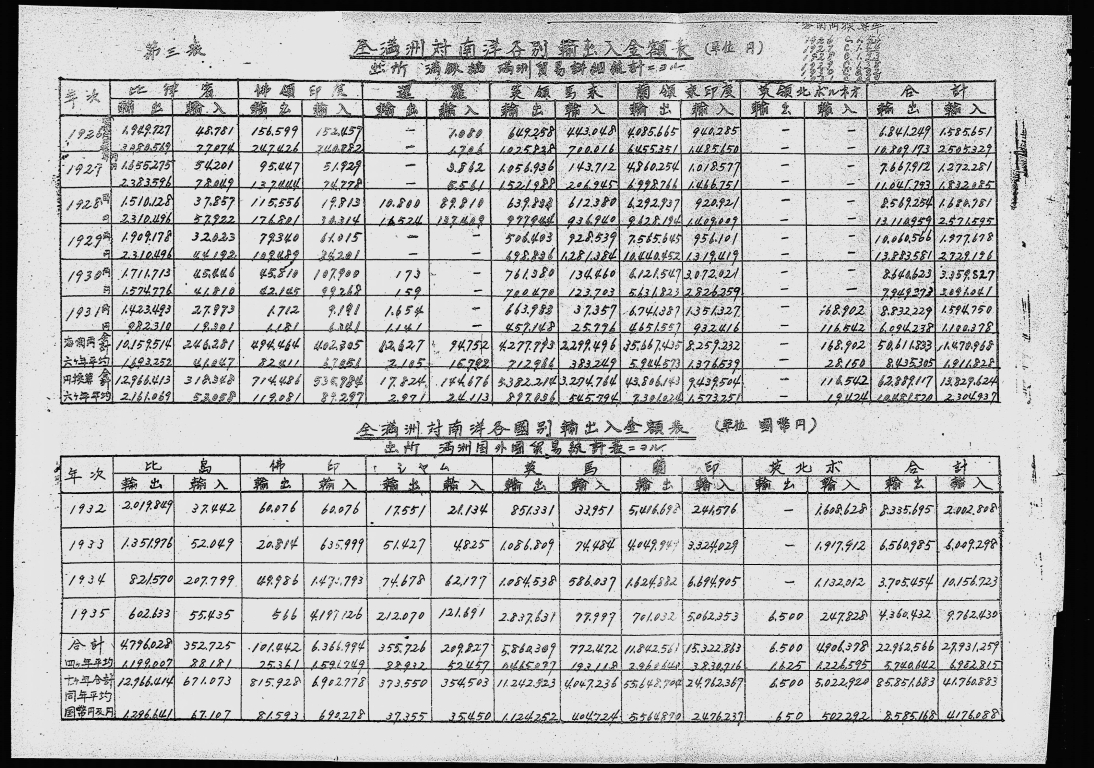 第三表
全満洲対南洋各別輸出入金額表 (單位 円)
出所 満鉄編 満洲貿易詳細統計ニヨル
年次 比律賓 佛領印度 暹羅 英領馬来 蘭領東印度 英領北ボルネオ 合計
輸出 輸入 輸出 輸入 輸出 輸入 輸出 輸入 輸出 輸入 輸出 輸入 輸出 輸入
1926 1,949,727 48,781 156,599 152,457 — 1,080 649,258 443,048 4,085,665 940,285 — — 6,841,249 1,585,651
3,280,569 77,074 247,426 240,882 — 1,706 1,025,828 700,016 6,455,351 1,485,650 — — 10,809,173 2,505,329
1927 1,655,275 54,201 95,447 51,929 — 3,862 1,056,936 143,712 4,860,254 1,018,577 — — 7,667,912 1,272,281
2,383,596 78,049 137,444 74,778 — 5,561 1,521,988 206,945 6,998,766 1,466,751 — — 11,041,793 1,832,085
1928 円 1,510,128 37,857 115,556 19,813 10,800 89,810 639,838 612,380 6,292,937 920,921 — — 8,569,254 1,680,781
円 2,310,496 57,922 176,801 30,314 16,524 137,409 977,944 936,940 9,628,194 1,409,009 — — 13,110,959 2,571,595
1929 1,909,178 32,023 79,340 61,015 — — 506,403 928,539 7,565,645 956,101 — — 10,060,566 1,977,678
円 2,310,496 44,192 109,489 34,201 — — 698,836 1,281,384 10,440,452 1,319,419 — — 13,883,581 2,729,196
1930 円 1,711,713 45,446 45,810 107,900 173 — 761,380 134,460 6,121,547 3,072,021 — — 8,640,623 3,359,827
円 1,574,776 41,810 42,145 99,268 159 — 700,470 123,703 5,631,823 2,826,259 — — 7,949,373 3,091,041
1931 円 1,423,493 27,973 1,712 9,191 1,654 — 663,983 37,357 6,741,387 1,351,327 — 168,902 8,832,229 1,594,750
円 982,310 19,301 1,181 6,341 1,141 — 457,148 25,776 4,651,557 932,416 — 116,542 6,094,238 1,100,378
海関両 合計 10,159,514 246,281 494,464 402,305 12,627 94,752 4,277,793 2,299,496 35,667,435 8,259,232 — 168,902 50,611,833 11,470,968
六ヶ年平均 1,693,252 41,047 82,411 67,051 2,105 15,792 712,966 383,249 5,944,573 1,376,539 — 28,150 8,435,305 1,911,828
円換算 合計 12,966,413 318,348 714,486 535,784 17,824 144,676 5,382,214 3,274,764 43,806,143 9,439,504 — 116,542 62,889,117 13,829,624
六ヶ年平均 2,161,069 53,058 119,081 89,297 2,971 24,113 897,036 545,794 7,301,024 1,573,251 — 19,424 10,481,520 2,304,937
全満洲対南洋各國別輸出入金額表 (單位 國幣円)
出所 満洲国外國貿易統計表ニヨル
年次 比島 佛印 シャム 英馬 蘭印 英北ボ 合計
輸出 輸入 輸出 輸入 輸出 輸入 輸出 輸入 輸出 輸入 輸出 輸入 輸出 輸入
1932 2,019,849 37,442 60,076 60,076 17,551 21,134 851,331 33,951 5,416,698 241,576 — 1,608,628 8,335,695 2,002,808
1933 1,351,976 52,049 20,814 635,999 51,427 4,825 1,086,809 74,484 4,049,949 3,324,029 — 1,917,912 6,560,985 6,009,298
1934 821,570 207,799 49,986 74,678 62,177 1,084,538 586,037 1,624,882 6,694,905 — 1,132,012 3,705,454 10,156,723
1935 602,633 55,435 566 4,197,126 212,070 121,691 2,837,631 77,997 701,032 5,062,353 6,500 247,828 4,360,432 9,762,430
合計 4,796,028 352,725 101,442 6,366,994 355,726 209,827 5,860,309 772,472 11,842,561 15,322,863 6,500 4,906,378 22,962,566 27,931,259
四ヶ年平均 1,199,007 88,181 25,361 1,591,749 88,932 52,457 1,465,077 193,118 2,960,640 3,830,716 1,625 1,226,595 5,740,642 6,982,815
十ヶ年合計 12,966,414 671,073 815,928 6,902,778 373,550 354,503 11,242,923 4,047,236 55,648,704 24,762,367 6,500 5,022,920 85,851,683 41,760,883
同年平均
國幣円及円 1,296,641 67,107 81,593 690,278 37,355 35,450 1,124,252 404,724 5,564,870 2,476,237 650 502,292 8,585,168 4,176,088